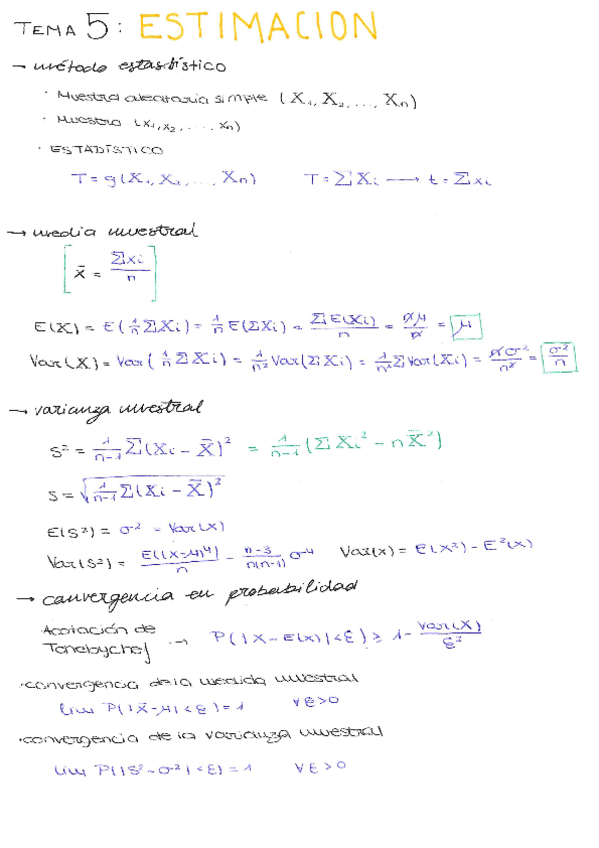 TEMA 5: ESTIMACION
→ método estadístico
· Muestra aleatoria simple (X₁, X₂, ..., Xn)
· Muestra (x₁, x₂, ..., xn)
· ESTADÍSTICO
T = g(X₁, X₂, ..., Xn) T = ΣXi → t = Σxi
→ media muestral
[x̄ = Σxi / n]
E(X) = E(1/n ΣXi) = 1/n E(ΣXi) = ΣE(Xi)/n = nμ/n = μ
Var(X) = Var(1/n ΣXi) = 1/n² Var(ΣXi) = 1/n² ΣVar(Xi) = nσ²/n² = σ²/n
→ varianza muestral
S² = 1/n-1 Σ(Xi - X̄)² = 1/n-1 (ΣXi² - nX̄²)
S = √(1/n-1 Σ(Xi - X̄)²)
E(S²) = σ² = Var(X)
Var(S²) = E((X-μ)⁴)/n - n-3/n(n-1) σ⁴ Var(x) = E(X²) - E²(X)
→ convergencia en probabilidad
Acotación de
Tchebychef → P(|X - E(x)| < ε) ≥ 1 - Var(X)/ε²
· convergencia de la media muestral
lim P(|X̄ - μ| < ε) = 1 ∀ε>0
· convergencia de la varianza muestral
lim P(|S² - σ²| < ε) = 1 ∀ε>0